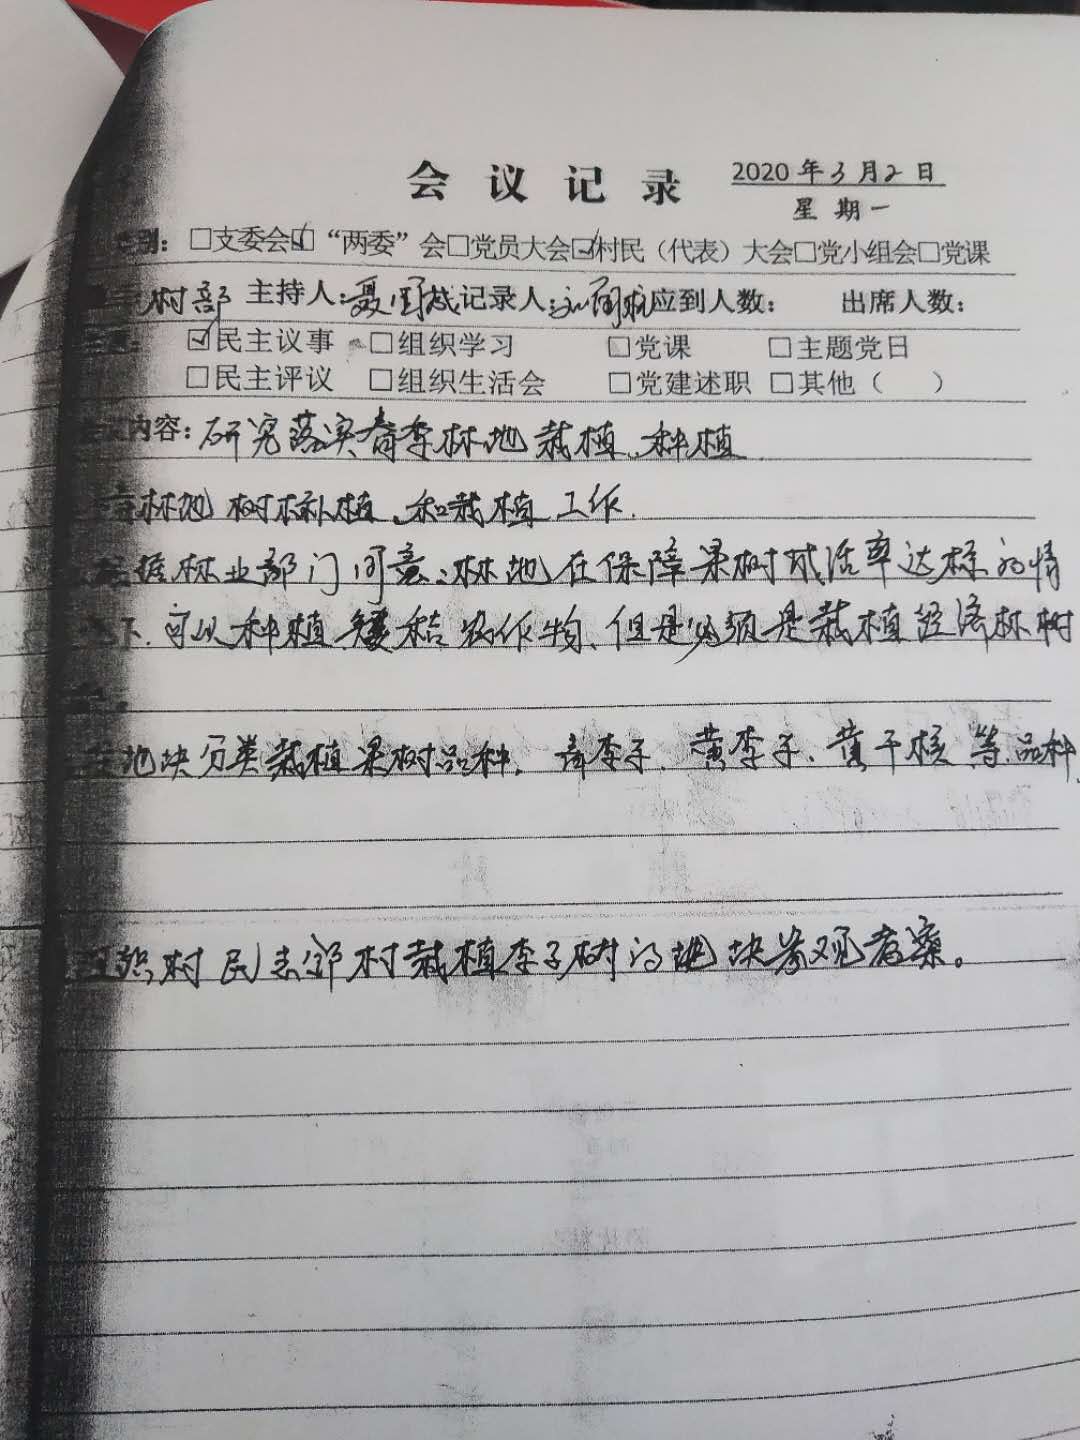 会议记录 2020年3月2日
星期一
别：□支委会☑“两委”会□党员大会☑村民（代表）大会□党小组会□党课
村部 主持人：聂 记录人：刘 应到人数： 出席人数：
☑民主议事 □组织学习 □党课 □主题党日
□民主评议 □组织生活会 □党建述职 □其他（ ）
内容：研究落实青李林地栽植、种植
林地树木补植、和栽植工作.
据林业部门同意：林地在保障果树成活率达标的情
下.可以种植矮秸农作物、但是必须是栽植经济林树
地块分类栽植果树品种. 青李子、黄李子、黄干核等品种.
织村民去邻村栽植李子树的地块参观考察。